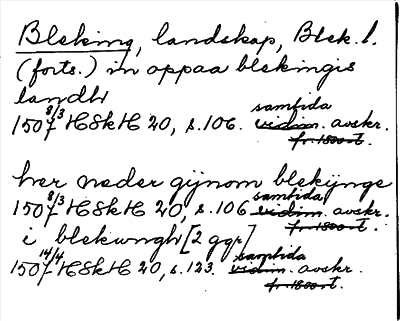 Bleking, landskap, Blek. l.
(forts.) in oppaa blekingis
landh
1507 8/3 HSkH 20, s. 106. samtida vidim. avskr. fr. 1800-t.
her neder gijnom blekijnge
1507 8/3 HSkH 20, s. 106 samtida vidim. avskr. fr. 1800-t.
i blekungh [2 ggr]
1507 14/4 HSkH 20, s. 123. samtida vidim. avskr. fr. 1800-t.